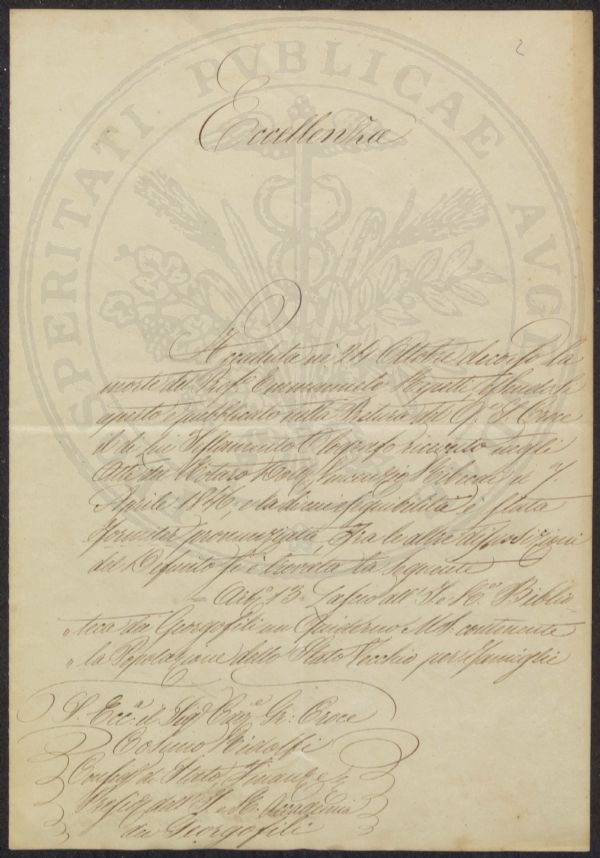 2
PROSPERITATI PVBLICAE AVGE
Eccellenza
Accaduta ne' 24 Ottobre decorso la
morte del Prof. Emmanuele Repetti, essendosi
aperto e pubblicato nella del S. Croce
il di lui Testamento Olografo ricevuto negli
Atti del Notaro Dott. Vincenzio li 7.
Aprile 1846, e la di cui eseguibilità è stata
pronunziata, Fra le altre disposizioni
del Defunto si è trovata la seguente
Art. 13. Lascio all' I. e R. Biblio
teca dei Georgofili un Quaderno MS. contenente
la Popolazione dello Stato Vecchio per famiglie
S. Ecc.a il Sig. Cav.e Gr: Croce
Cosimo Ridolfi
di Stato, Finanze,
Presid. dell' I. e R. Accademia
dei Georgofili